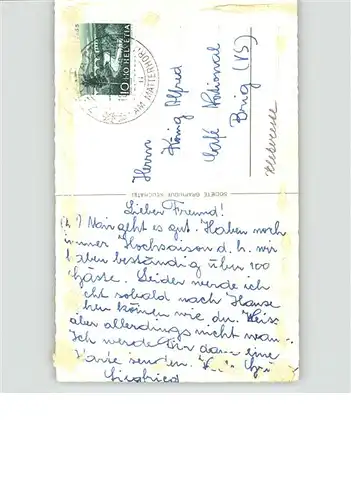 HELVETIA
10
AM MATTERHORN
Herrn
König Alfred
Café National
Brig (VS)
SOCIÉTÉ GRAPHIQUE NEUCHATEL
Lieber Freund!
geht es gut. Haben noch
immer Hochsaison d. h. wir
haben beständig über 100
Gäste. Leider werde ich
cht sobald nach Hause
hen können wie du. Weiss
aber allerdings nicht wann.
Ich werde Dir dann eine
Karte senden.
Siegfried